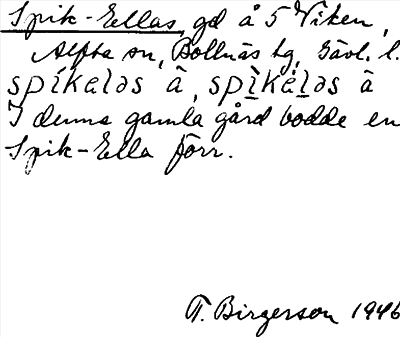 Spik-Ellas, gd å 5 Viken,
Alfta sn, Bollnäs tg, Gävl. l.
spíkeləs å, spìkéləs å
I denna gamla gård bodde en
Spik-Ella förr.
T. Birgerson 1946